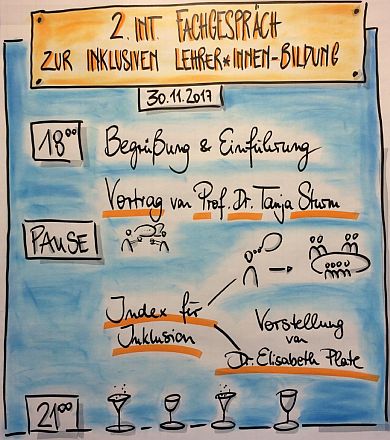 2. INT. FACHGESPRÄCH
ZUR INKLUSIVEN LEHRER*INNEN-BILDUNG
30.11.2017
18⁰⁰ Begrüßung & Einführung
Vortrag von Prof. Dr. Tanja Sturm
PAUSE
Index für
Inklusion
Vorstellung
von
Dr. Elisabeth Plate
21⁰⁰